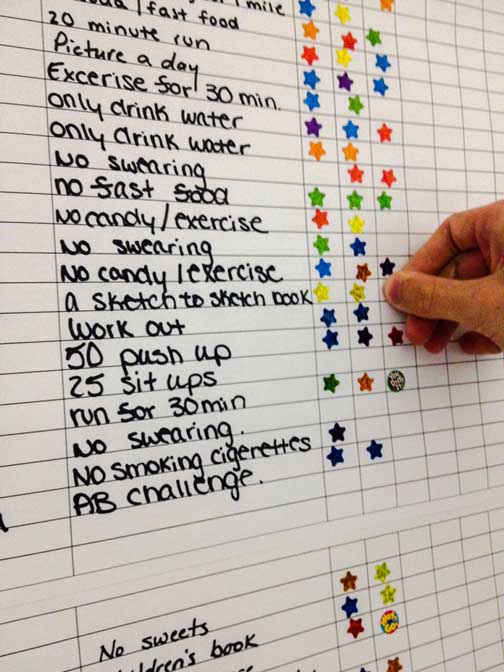 /fast food /mile
20 minute run
Picture a day
Excerise for 30 min.
only drink water
only drink water
No swearing
no fast food
No candy/exercise
No swearing
No candy/exercise
a sketch to sketch book
work out
50 push up
25 sit ups
run for 30min
No swearing.
NO smoking cigerettes
AB challenge.
No sweets
children's book